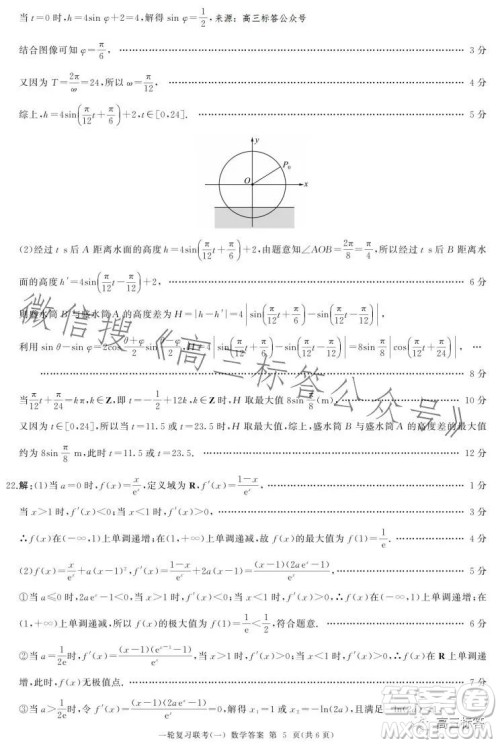 当t=0时,h=4sin φ+2=4,解得sin φ=1/2,来源:高三标答公众号
结合图像可知φ=π/6, ………… 3分
又因为T=2π/ω=24,所以ω=π/12, ………… 4分
综上,h=4sin(π/12 t+π/6)+2,t∈[0,24]. ………… 5分
y
P₀
O
x
(2)经过t s后A距离水面的高度h=4sin(π/12 t+π/6)+2,由题意知∠AOB=2π/8=π/4,所以经过t s后B距离水
面的高度h′=4sin(π/12 t-π/12)+2, ………… 6分
则盛水筒B与盛水筒A的高度差为H=|h-h′|=4|sin(π/12 t+π/6)-sin(π/12 t-π/12)|,
利用sin θ-sin φ=2cos (θ+φ)/2 sin (θ-φ)/2,H=4|sin(π/12 t+π/6)-sin(π/12 t-π/12)|=8sin π/8|cos(π/12 t+π/24)|, …
………… 8分
当π/12 t+π/24=kπ,k∈Z,即t=-1/2+12k,k∈Z时,H取最大值8sin π/8(m). ………… 10分
又因为t∈[0,24],所以当t=11.5或t=23.5时,H取最大值,综上,盛水筒B与盛水筒A的高度差的最大值
约为8sin π/8 m,此时t=11.5或t=23.5. ………… 12分
22.解:(1)当a=0时,f(x)=x/eˣ,定义域为R,f′(x)=(1-x)/eˣ. ………… 1分
当x>1时,f′(x)<0;当x<1时,f′(x)>0. ………… 3分
∴f(x)在(-∞,1)上单调递增;在(1,+∞)上单调递减,故f(x)的最大值为f(1)=1/e. ………… 4分
(2)f(x)=x/eˣ+a(x-1)²,f′(x)=(1-x)/eˣ+2a(x-1)=(x-1)(2aeˣ-1)/eˣ. ………… 5分
①当a≤0时,2aeˣ-1<0,当x>1时,f′(x)<0;当x<1时,f′(x)>0.∴f(x)在(-∞,1)上单调递增;在
(1,+∞)上单调递减,所以f(x)的极大值为f(1)=1/e<1/2,符合题意. ………… 6分
②当a=1/2e时,f′(x)=(x-1)(eˣ⁻¹-1)/eˣ≥0,当且仅当x=1时,f′(x)=0,于是f(x)在R上单调递
增,此时,f(x)无极值点. ………… 7分
③当a>1/2e时,令f′(x)=(x-1)(2aeˣ-1)/eˣ=0,解得x₁=1或x₂=-ln(2a),且x₂=-ln(2a)
一轮复习联考(一) 数学答案 第 5 页(共 6 页)
微信搜《高三标答公众号》
高三标答
答案圈